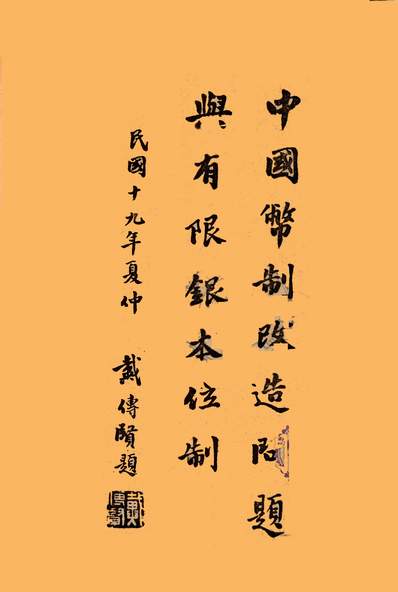 中國幣制改造問題
與有限銀本位制
民國十九年夏仲 戴傳賢題
戴傳賢